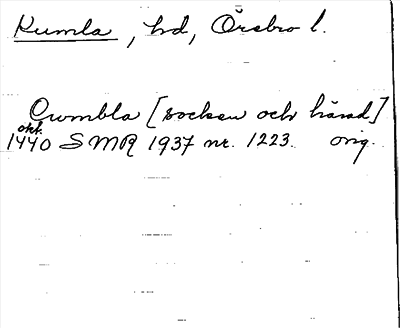 Kumla, hd, Örebro l.
Cwmbla [socken och härad]
okt.
1440 SMR 1937 nr. 1223. orig.